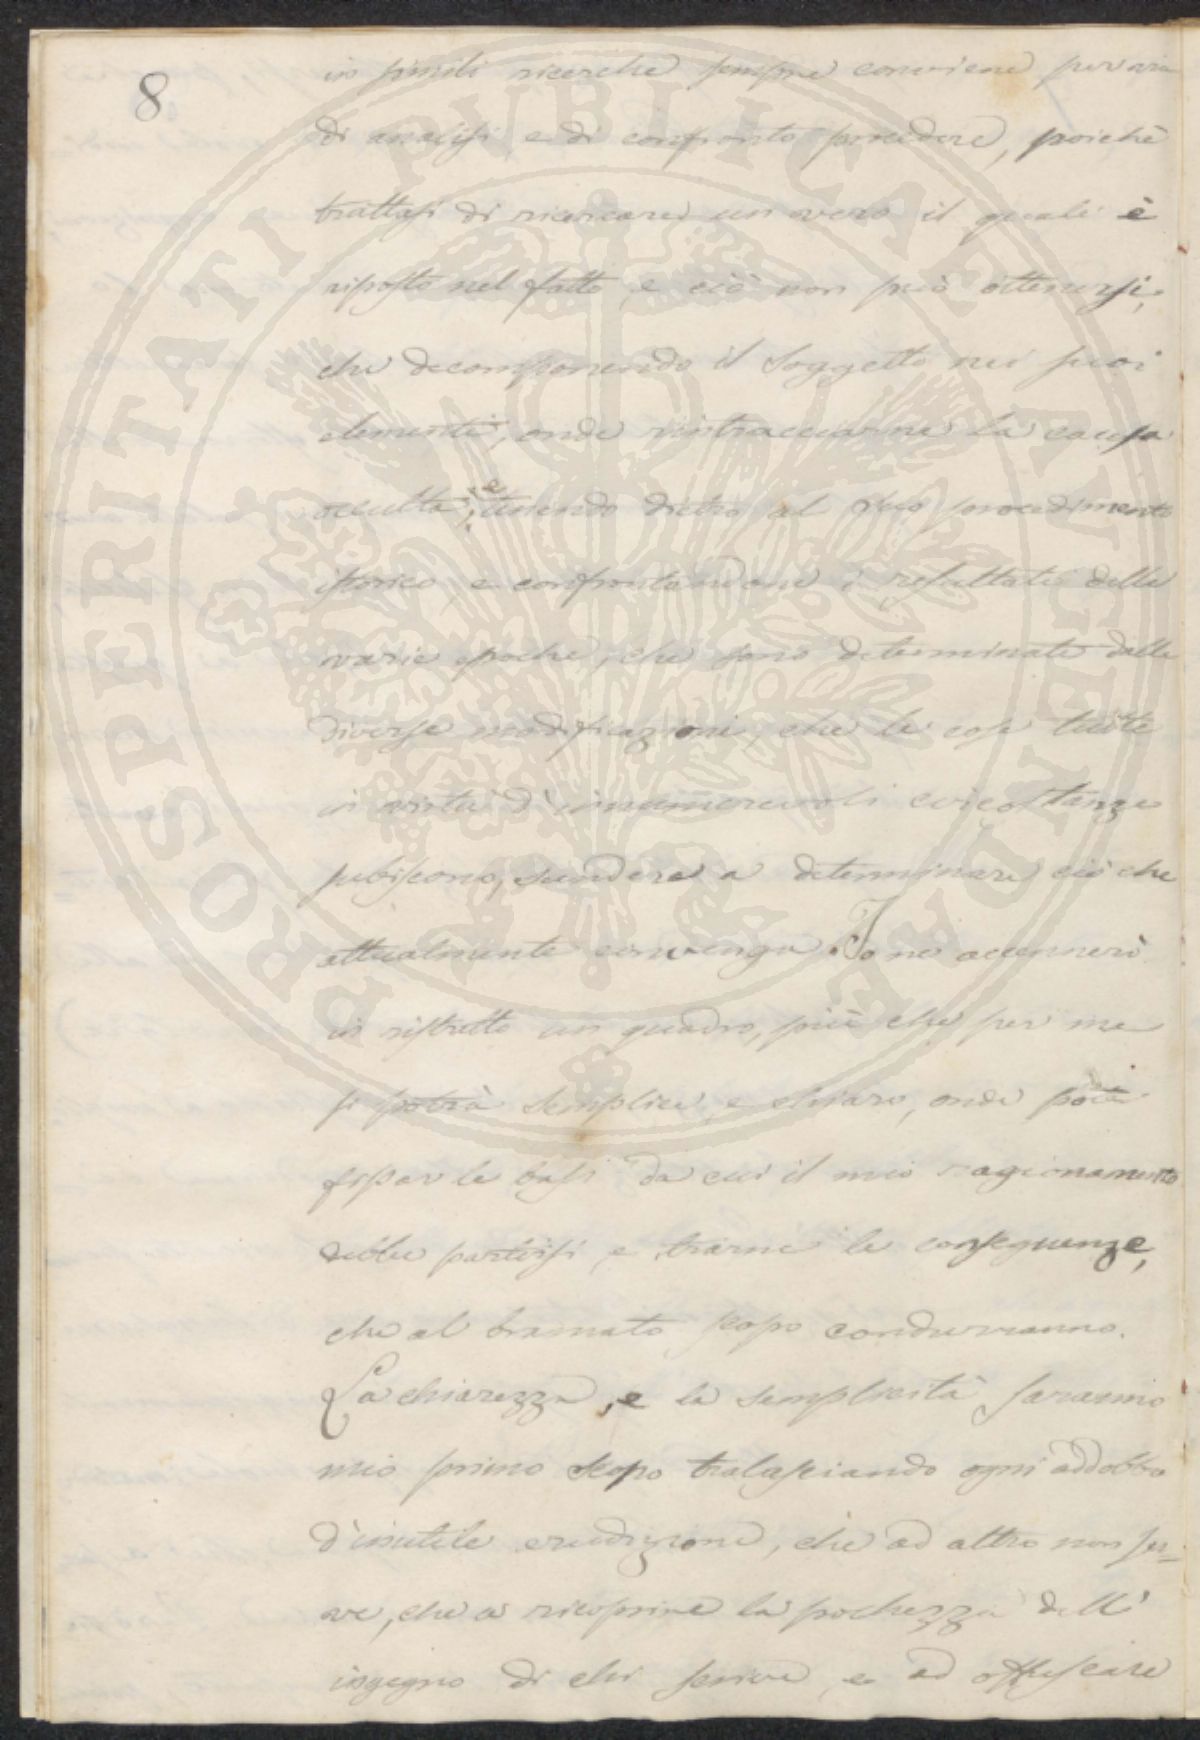 8
in simili ricerche sempre conviene per via
di analisi, e di confronto procedere, poichè
trattasi di ricercare un vero il quale è
risposto nel fatto, e ciò non può ottenersi,
che decomponendo il soggetto nei suoi
elementi, onde rintracciarne la causa
occulta; e tenendo dietro al suo procedimento
istorico, e confrontandone i resultati delle
varie epoche, che sono determinate dalle
diverse modificazioni, che le cose tutte
in virtù d'innumerevoli circostanze
subiscono, scendere a determinare ciò che
attualmente convenga. Io ne accennerò
in ristretto un quadro, più che per me
si potrà semplice, e chiaro, onde
fissar le basi da cui il mio ragionamento
debbe partirsi, e trarne le conseguenze,
che al bramato scopo condurranno.
La chiarezza, e la semplicità saranno
mio primo scopo tralasciando ogni addobbo
d'inutile erudizione, che ad altro non ser=
ve, che a ricoprire la pochezza dell'
ingegno di chi scrive, e ad offuscare
PROSPERITATI PUBLICAE AUGENDAE